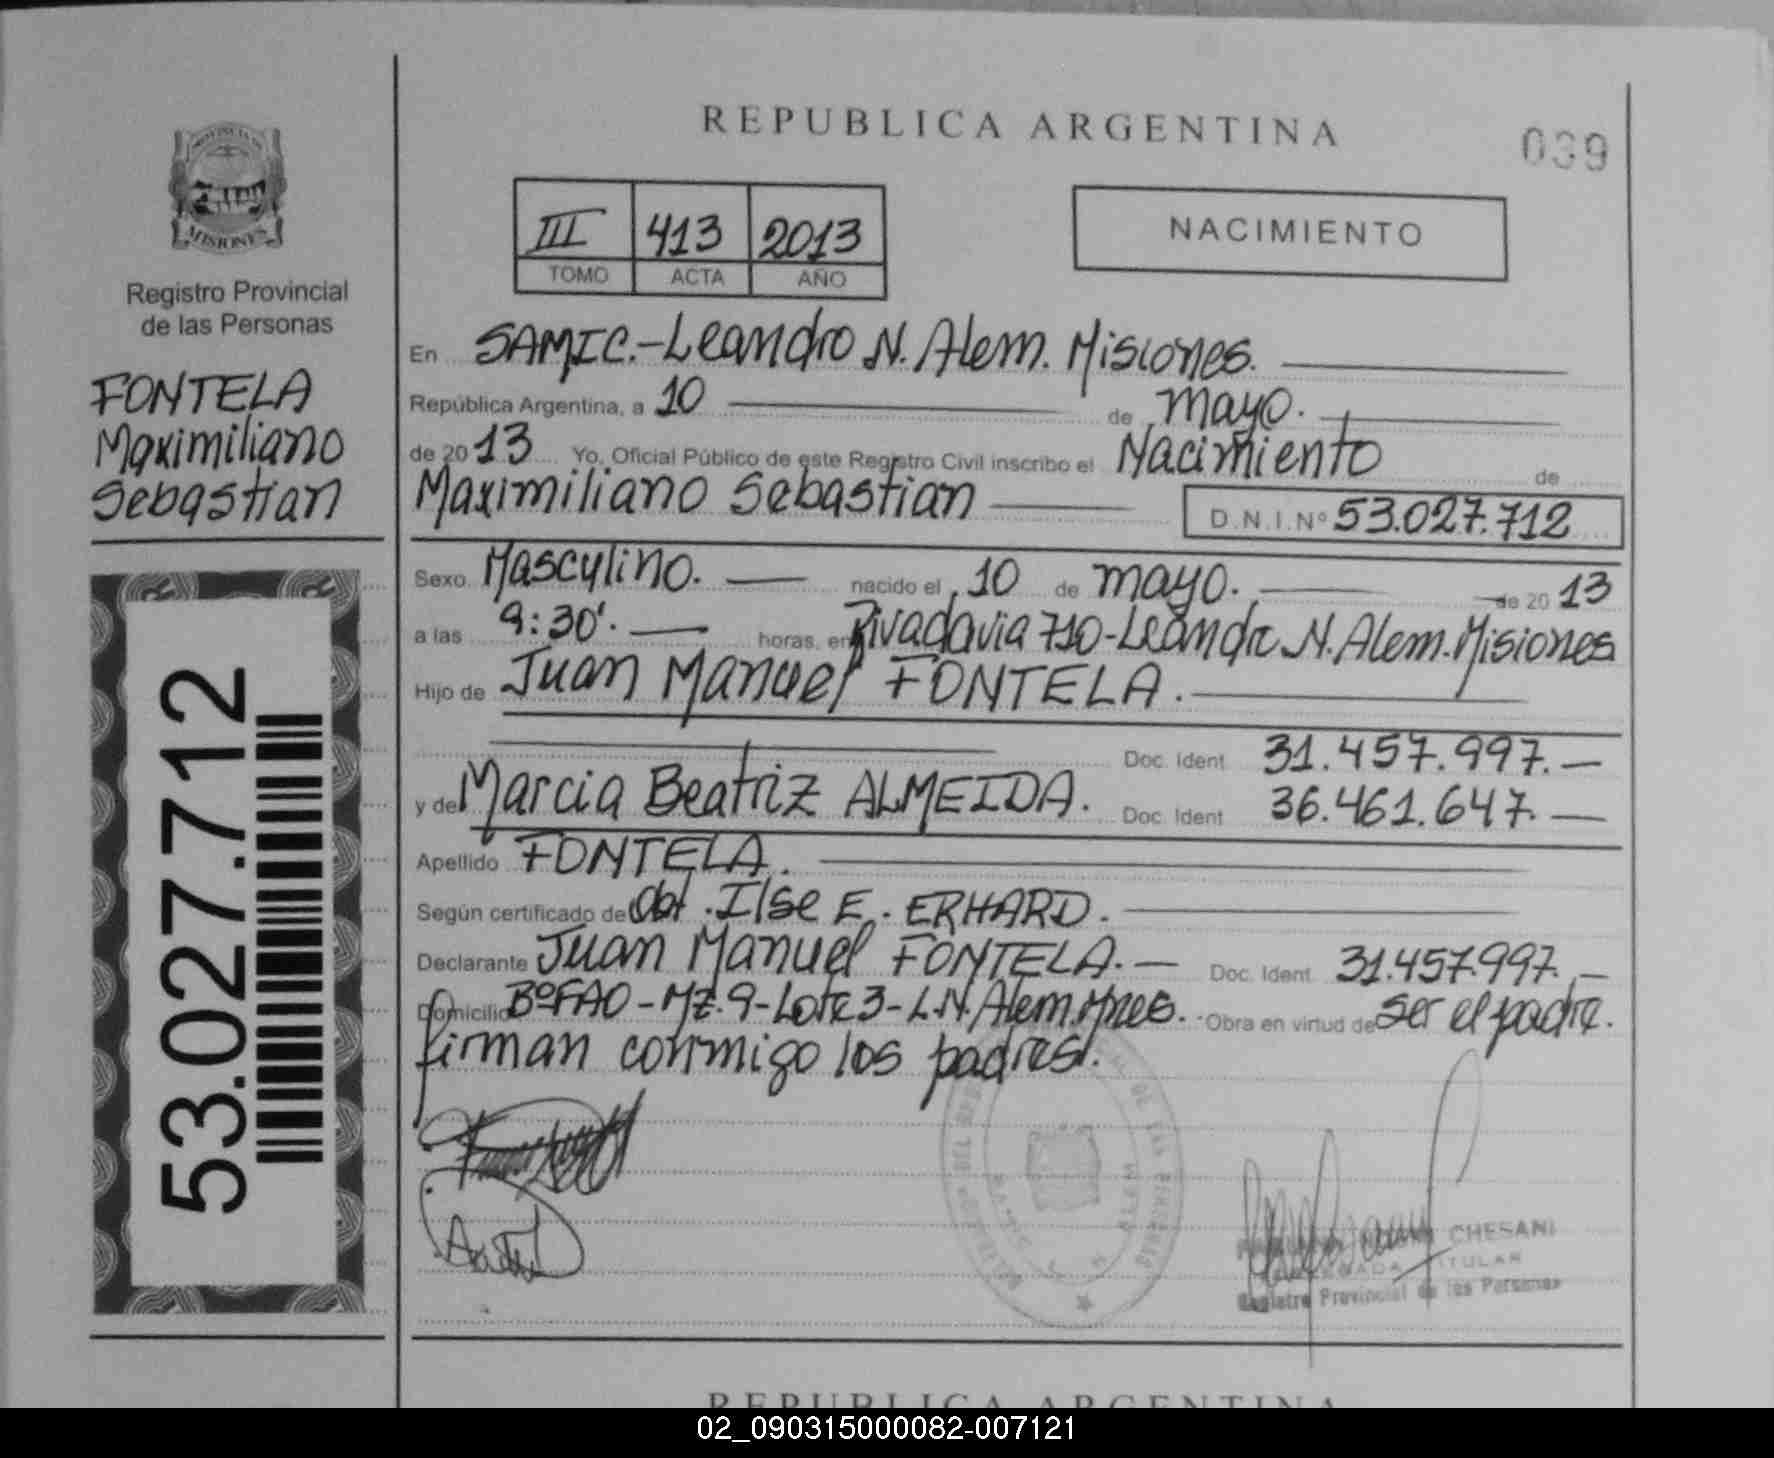 PROVINCIA DE
MISIONES
Registro Provincial
de las Personas
FONTELA
Maximiliano
Sebastian
53.027.712
REPUBLICA ARGENTINA
039
III 413 2013
TOMO ACTA AÑO
NACIMIENTO
En SAMIC.-Leandro N. Alem. Misiones.
República Argentina, a 10 de mayo.
de 2013 Yo, Oficial Público de este Registro Civil inscribo el Nacimiento de
Maximiliano Sebastian D.N.I.Nº 53.027.712
Sexo Masculino. nacido el 10 de mayo. de 2013
a las 9:30'. horas, en Rivadavia 710-Leandro N. Alem. Misiones
Hijo de Juan Manuel FONTELA.
Doc. Ident 31.457.997.-
y de Marcia Beatriz ALMEIDA. Doc. Ident 36.461.647.-
Apellido FONTELA.
Según certificado de Obt. Ilse E. ERHARD.
Declarante Juan Manuel FONTELA.- Doc. Ident. 31.457.997.-
Domicilio BºFAO-Mz.9-Lote 3-L.N.Alem.Mnes. Obra en virtud de ser el padre.
firman conmigo los padres.
CHESANI
TITULAR
Registro Provincial de las Personas
REPUBLICA ARGENTINA
02_090315000082-007121